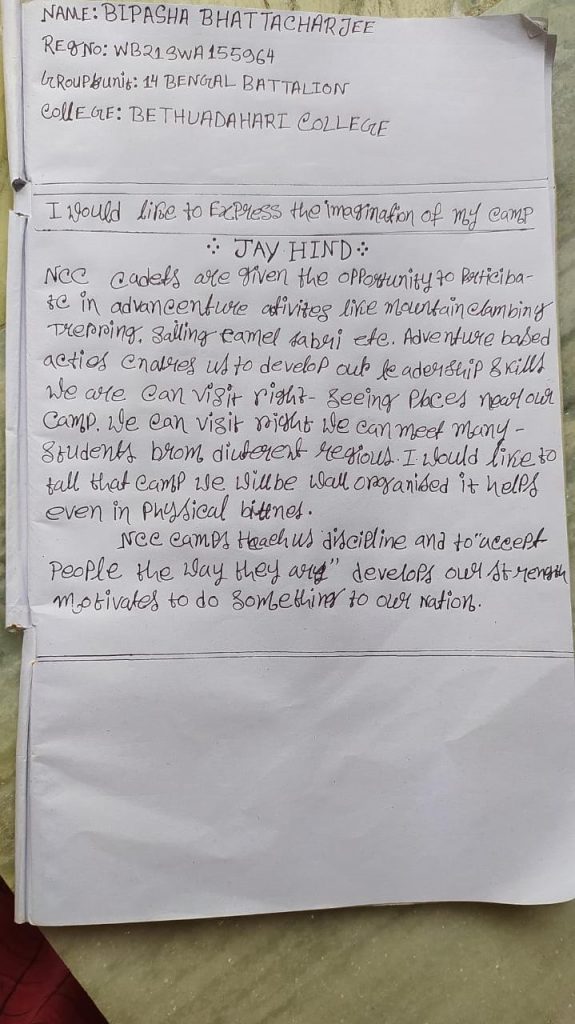 NAME: BIPASHA BHATTACHARJEE
REGNO: WB21SWA155964
GROUP&unit: 14 BENGAL BATTALION
COLLEGE: BETHUADAHARI COLLEGE
I would like to Express the imagination of my camp
JAY HIND
NCC cadets are given the opportunity to Perticiba-
te in advancenture ativites like mountain clambing
Trepping, Sailing camel sabri etc. Adventure based
acties enables us to develop our leadership skills
We are can visit right- seeing places near our
camp. We can visit right we can meet many -
students from diuterent regious. I would like to
tall that camp we willbe wall organised it helps
even in physical bittnes.
NCC camps teach us discipline and to "accept
people the way they are" develops our strength
motivates to do something to our nation.